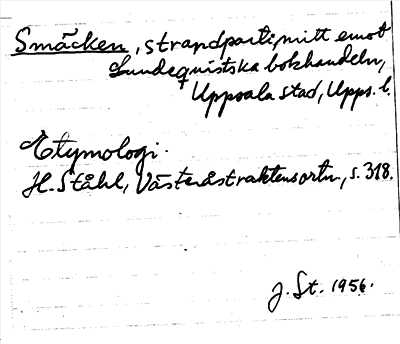 Smäcken, strandparti mitt emot
Lundequistska bokhandeln,
Uppsala stad, Upps. l.
Etymologi.
H. Ståhl, Västeråstraktens ortn., s. 318.
J. St. 1956.